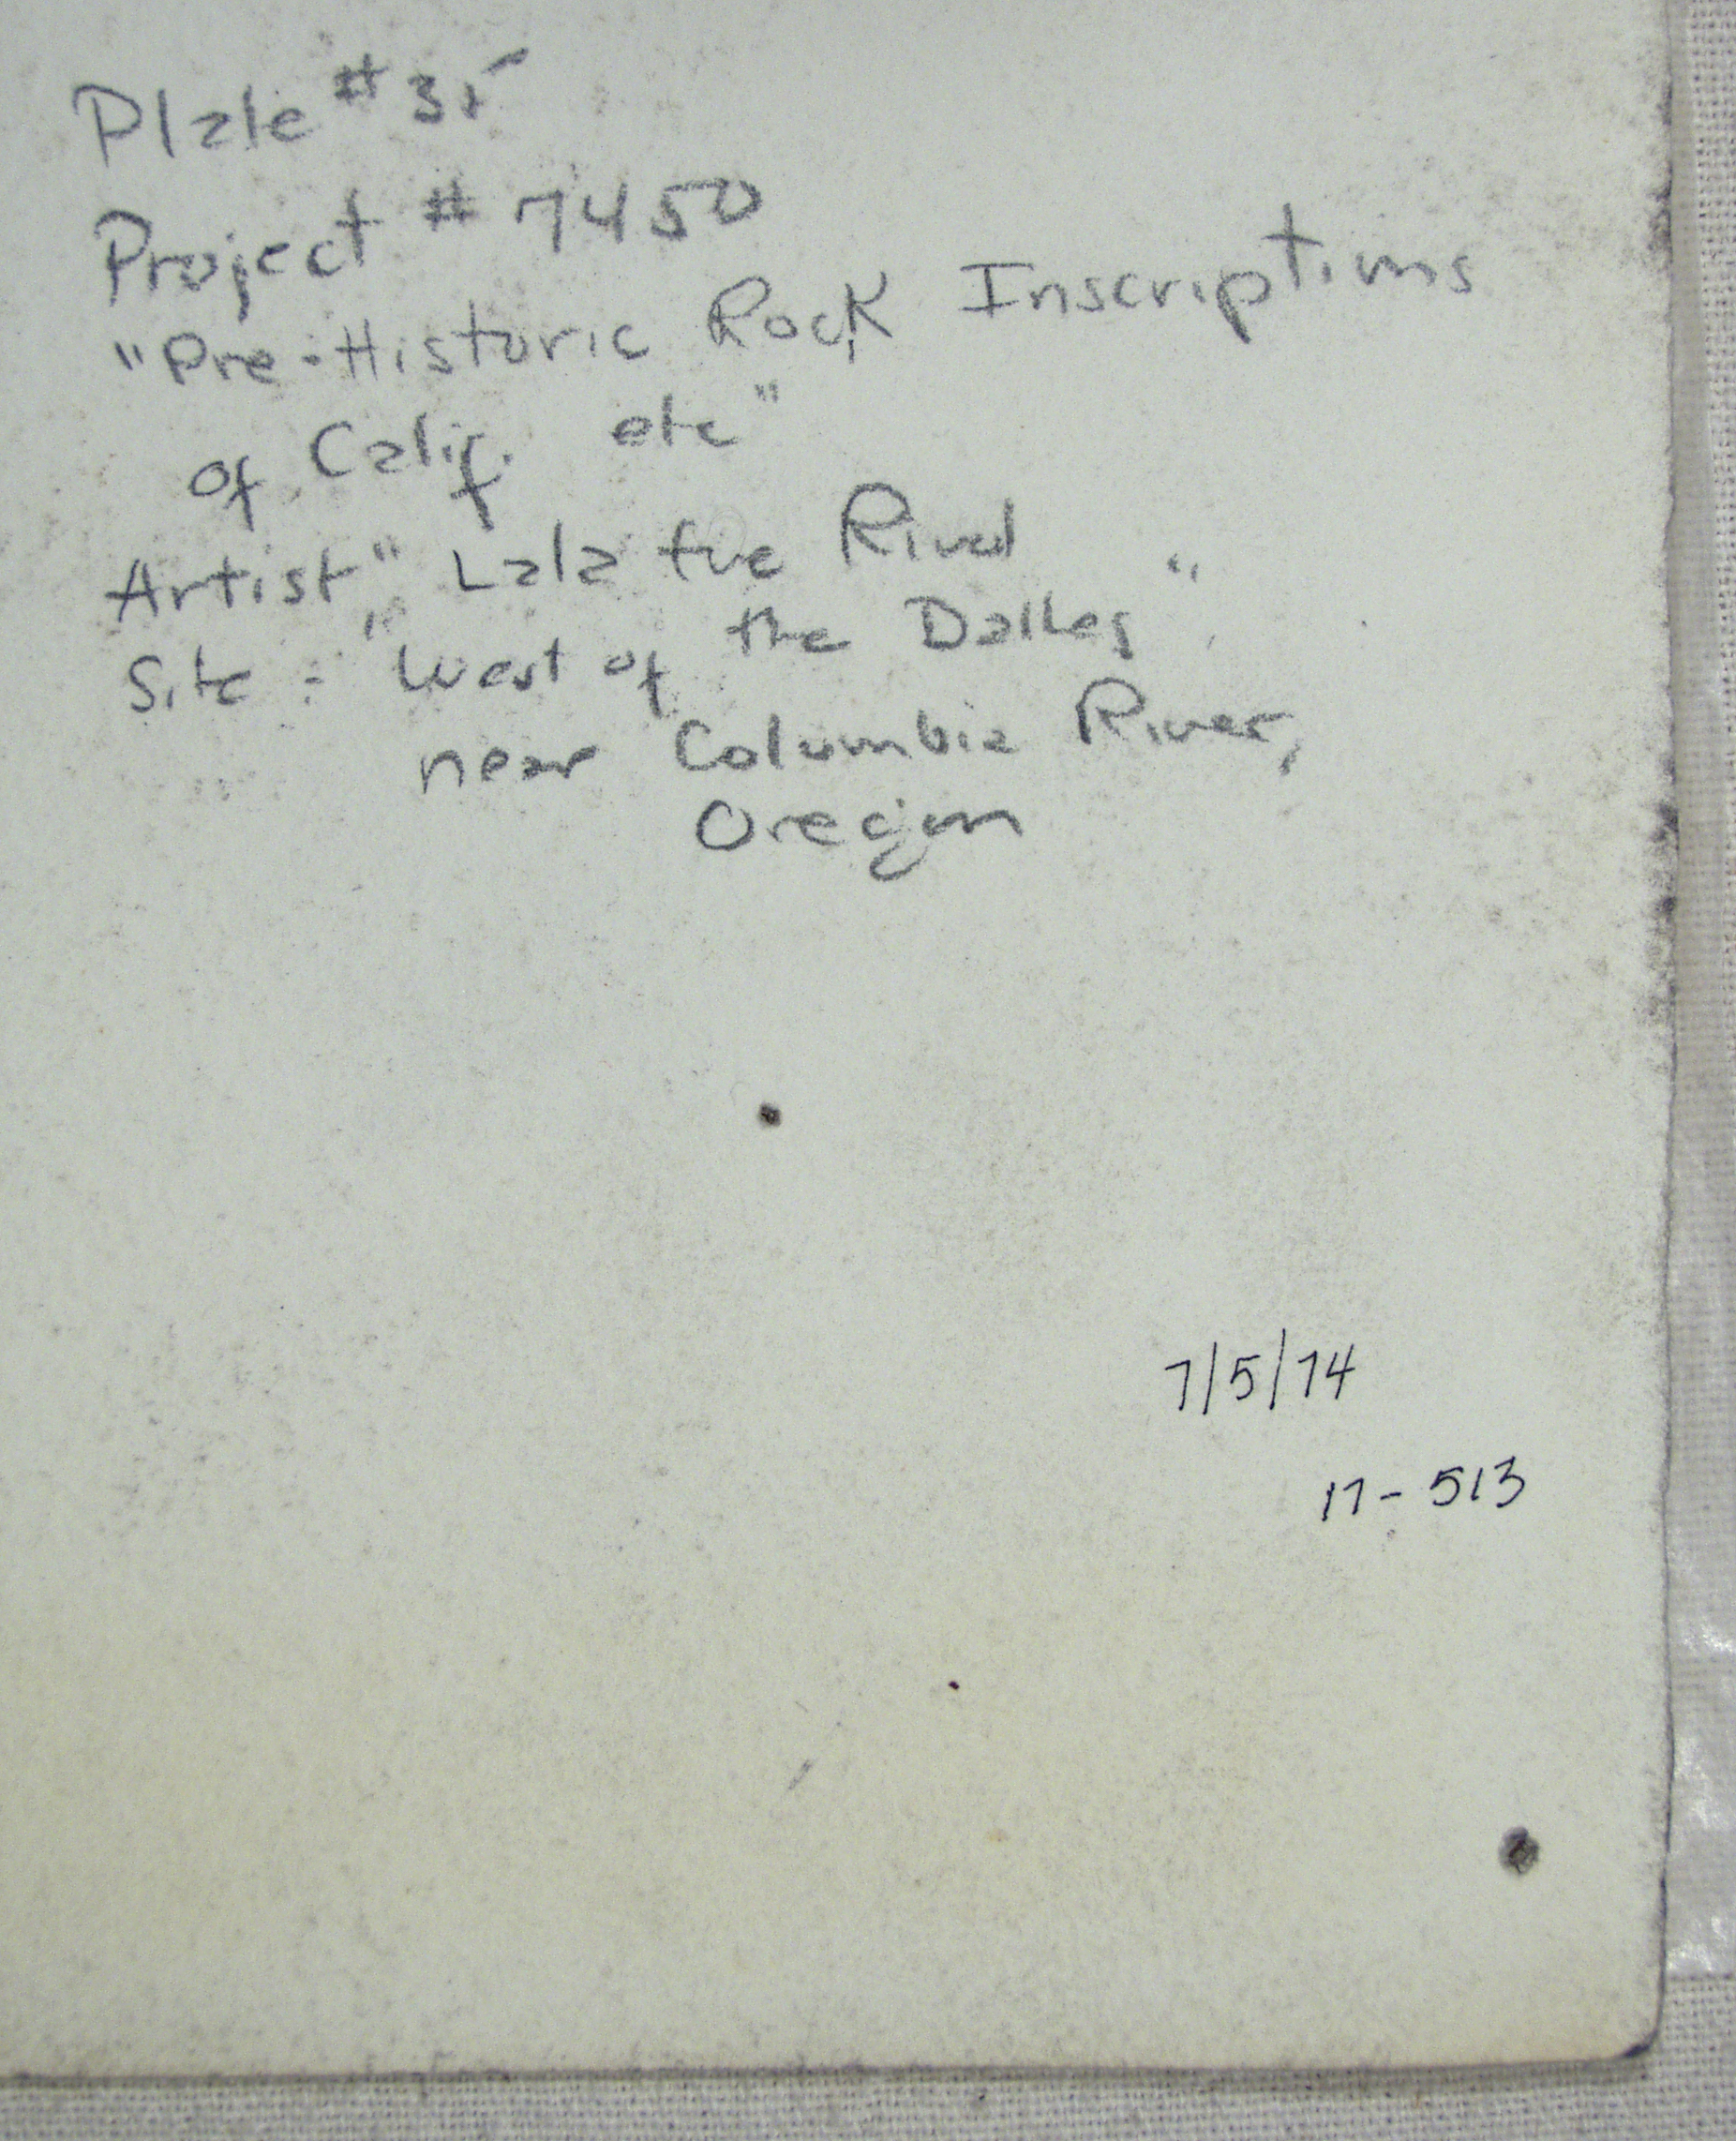 Plate #35
Project # 7450
"Pre-Historic Rock Inscriptions
of Calif. etc"
Artist" Lala Eve Rivol
Site: "West of the Dalles"
near Columbia River,
Oregon
7/5/74
17-513